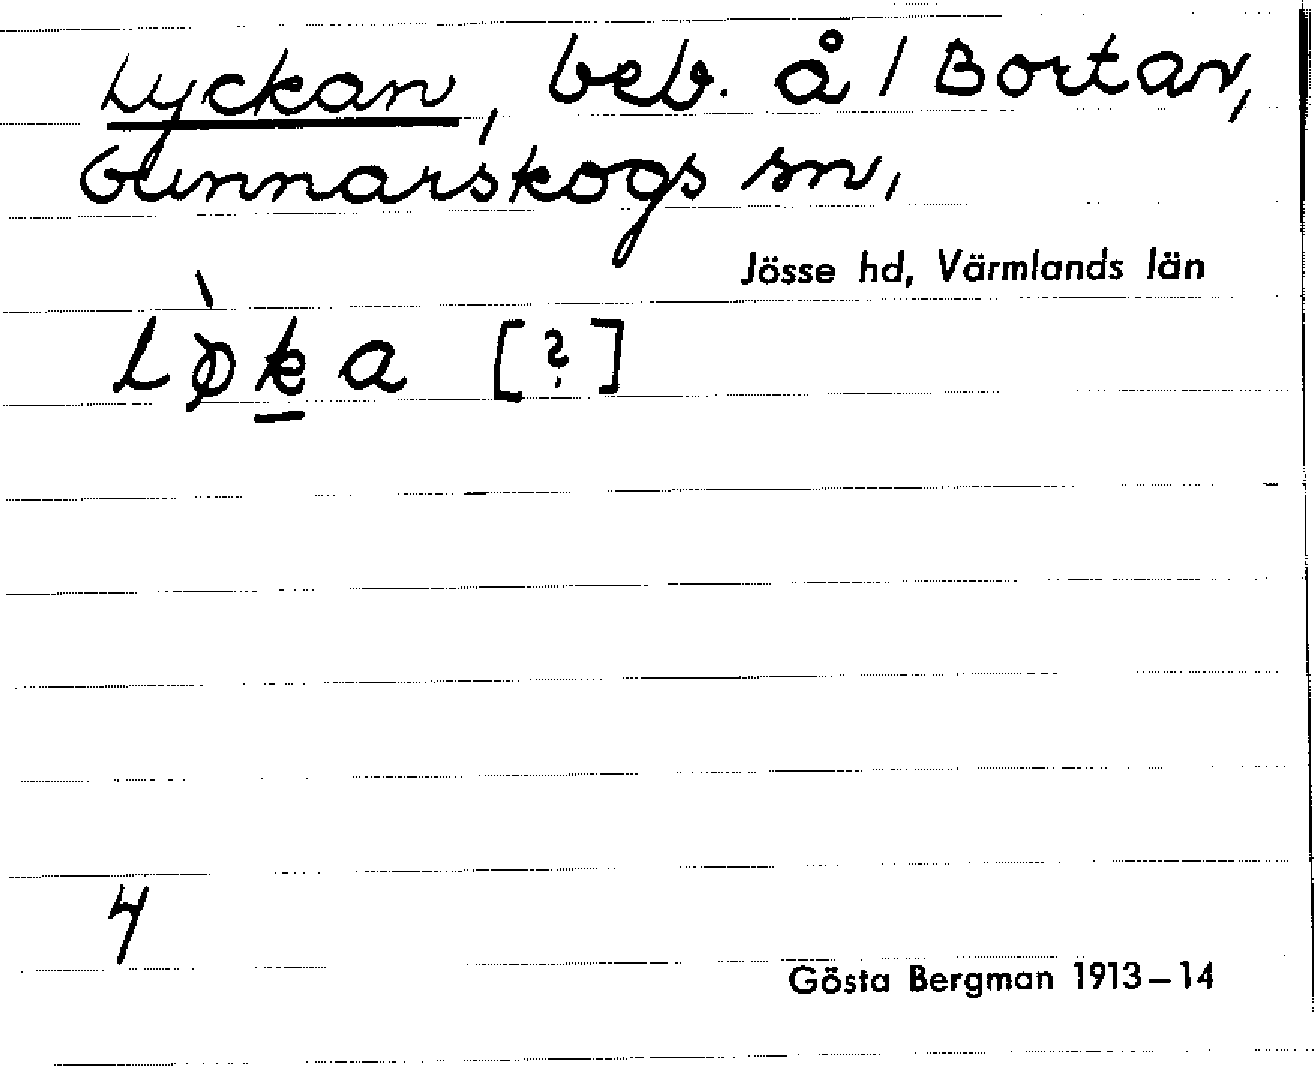 Lyckan, beb. å 1 Bortan,
Gunnarskogs sn,
Jösse hd, Värmlands län
Lø̀k̲a [?]
4
Gösta Bergman 1913–14